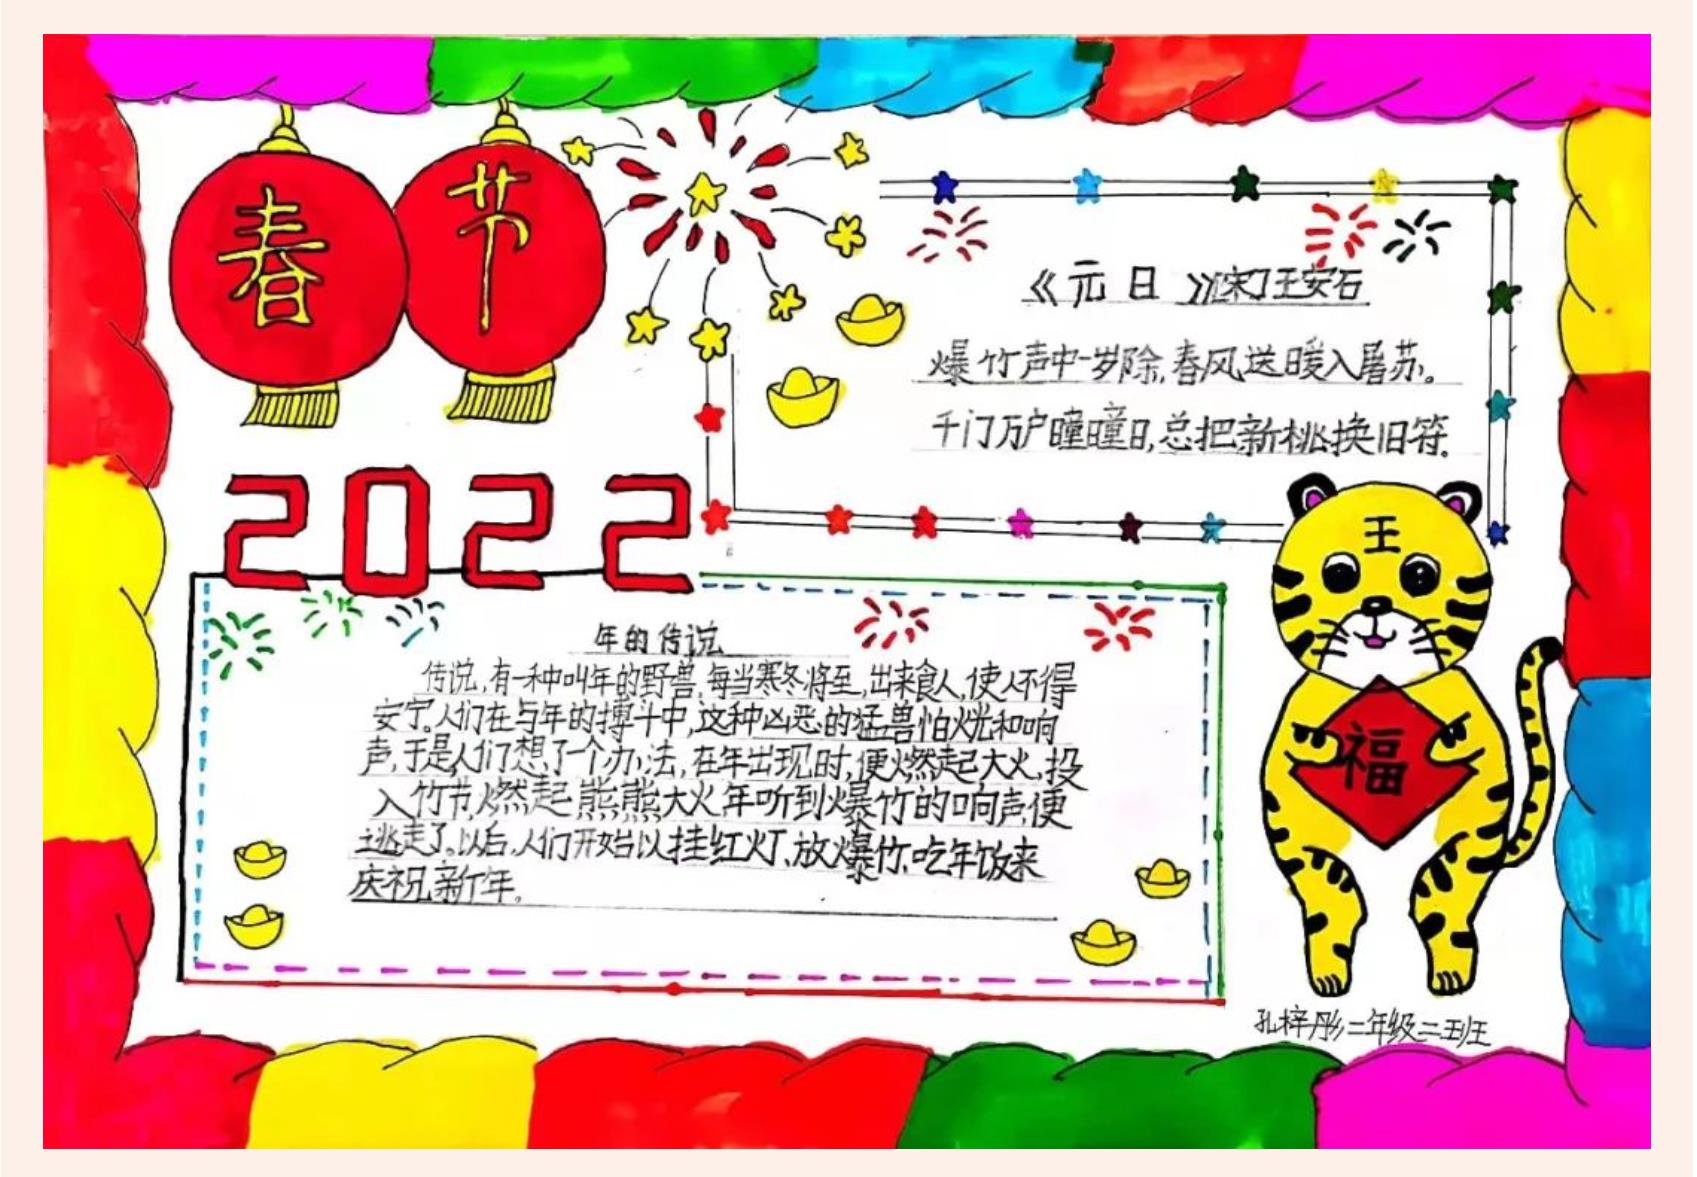 春节
《元日》〔宋〕王安石
爆竹声中一岁除,春风送暖入屠苏。
千门万户瞳瞳日,总把新桃换旧符.
2022
年的传说
传说,有一种叫年的野兽,每当寒冬将至,出来食人,使人不得
安宁。人们在与年的搏斗中,这种凶恶的猛兽怕光和响
声,于是人们想了一个办法,在年出现时,便燃起大火,投
入竹节,燃起熊熊大火年听到爆竹的响声,便
逃走了。以后,人们开始以挂红灯、放爆竹、吃年饭来
庆祝新年。
王
福
孔梓彤二年级二班